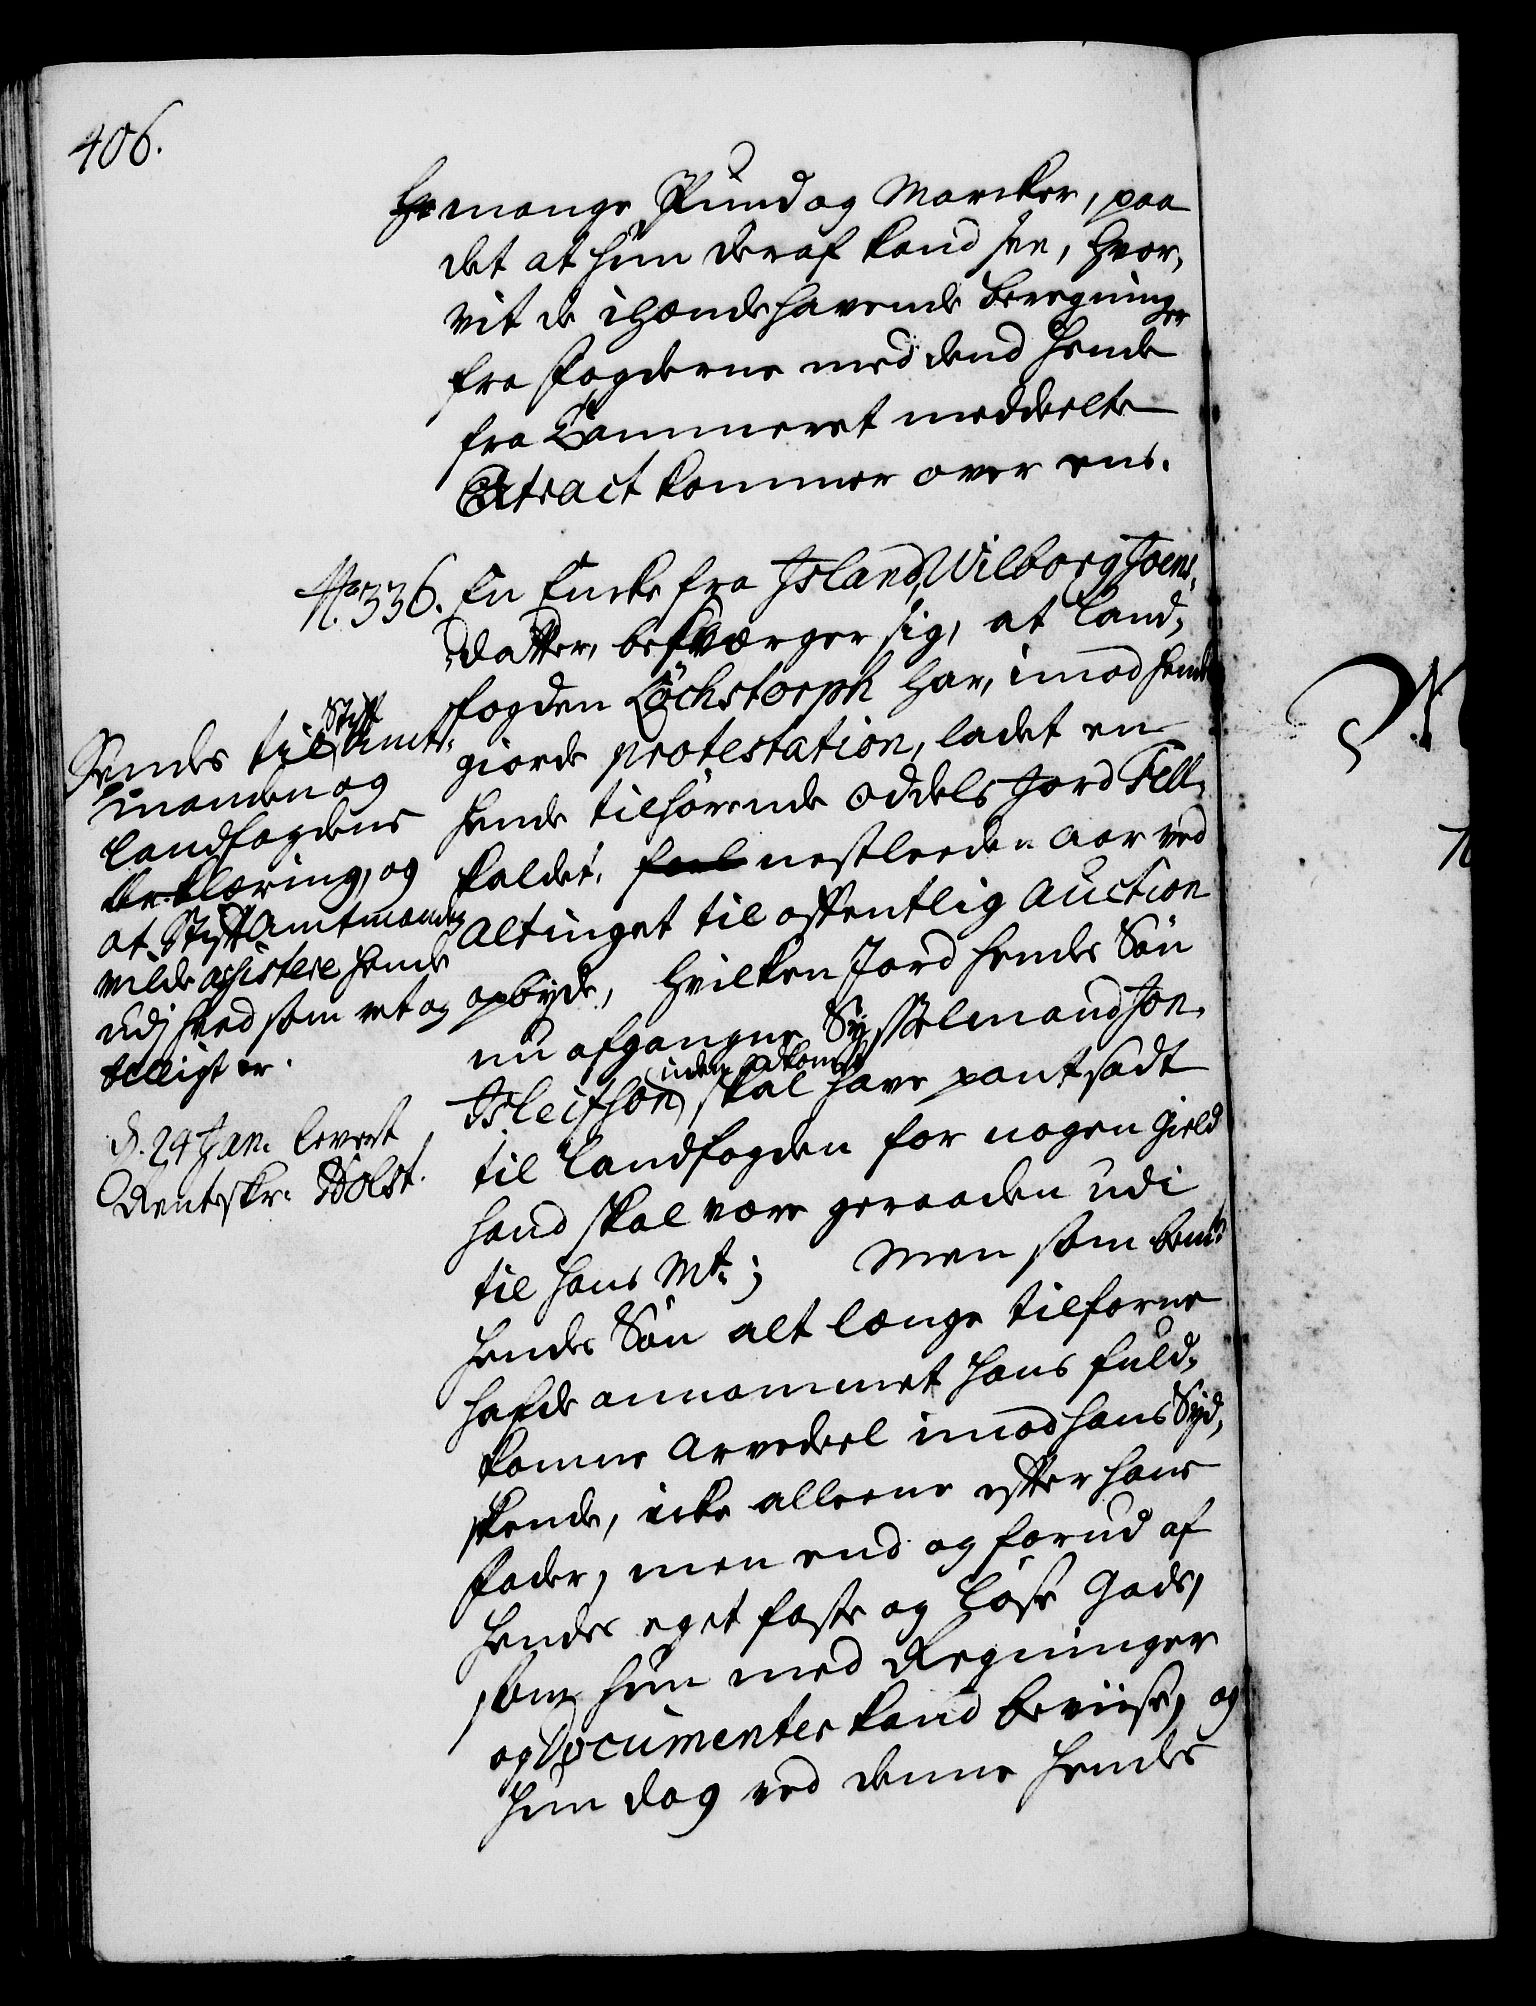 406.
mange Pund og Marcker, paa
det at hun deraf kand see, hvor¬
vit de ihændehavende beregninger
fra Fogderne med dend hende
fra Cammeret meddeelte
Extract kommer over eens.
No 336. En Encke fra Island, Wilborg Joens¬
datter, besværger sig, at Land¬
fogden Löchstorph har, imod hendes
giorde protestation, ladet en
hende tilhörende Oddels Jord Fell
kaldet, nestleeden Aar ved
Altinget til offentlig Auction
opbyde, hvilken Jord hendes Sön
nu afgangne Sysselmand Jon
Isleifson uden adkomst skal have pantsadt
til Landfogden for nogen Gield
hand skal være geraaden udi
til hans Mt.; Men som bemte
hendes Sön alt længe tilforne
hafde annammet hans fuld¬
komne Arvedeel imod hans Syd¬
skende, icke alleene efter hans
Fader, men end og forud af
hendes eget faste og löse Gods,
som hun med Regninger
og Documenter kand beviise, og
hun dog ved denne hendes
Sendes til Stift Amt¬
manden og
Landfogdens
Erklæring, og
at Stift Amtmanden
vilde assistere hende
udj hved som ret og
billigt er.
d. 24 Jan. leveret
Renteskr. Holst.